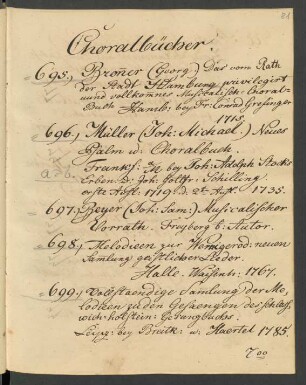 Choralbücher.
695., Broner (Georg) Das vom Rath
der Stadt Hamburg privilegirt
und vollkomnes Musicalisch-Choral-
Buch Hamb. bey Conrad Greflinger
1715.
696., Müller (Joh: Michael.) Neues
Psalm u: Choralbuch
Frankf: a/M bey Joh: Adolph Stock
Erben u: Joh: Gottfr: Schilling.
erste Aufl. 1719. d. 2t. Aufl. 1735.
697., Beyer (Joh: Sam:) Musicalischer
Vorrath. Freyberg b: Autor.
698., Melodieen zur Wernigerod: neuen
Samlung geistlicher Lieder.
Halle. Waisenh: 1767.
699., Vollstaendige Samlung der Me-
lodieen zu den Gesaengen des schles-
wich-holstein: Gesangbuchs.
Leipz: bey Breitk: u: Haertel 1785.
700